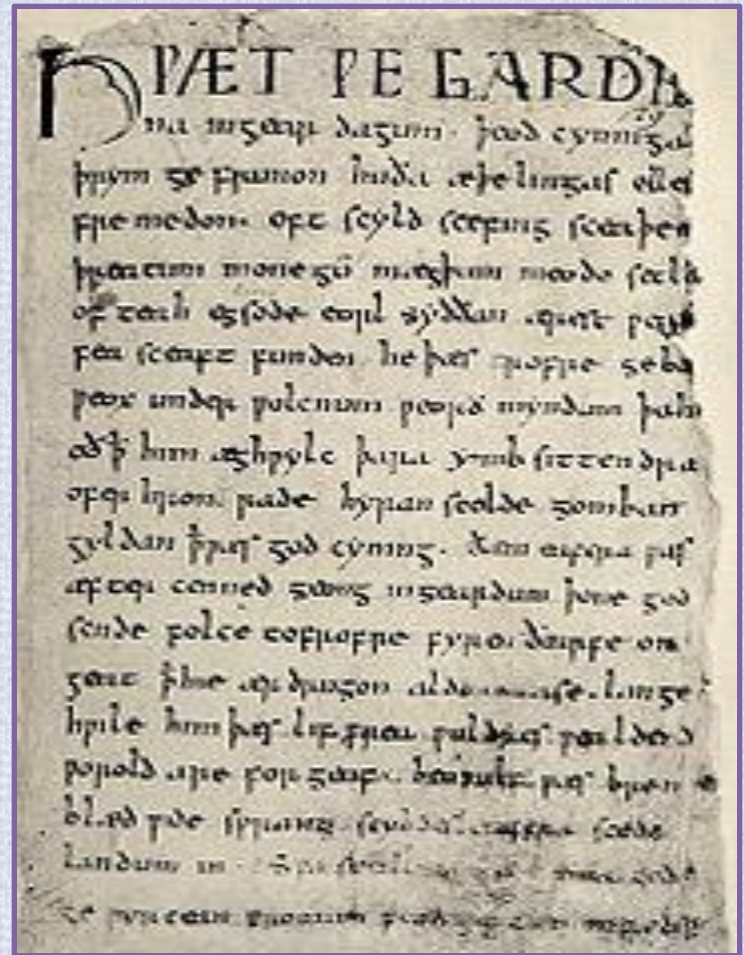 HǷÆT ǷE GARDE
na ingear dagum. þeod cyninga
þrym ge frunon huða æþelingas elle
fre medon. oft scyld scefing sceaþe
þreatum monegū mægþum meodo setla
of teah egsode eorl syððan ærest ƿear
fea sceaft funden he þæs frofre geba
ƿeox under ƿolcnum ƿeorð myndum þah
oð ꝥ him æghƿylc þara ymb sittendra
ofer hron rade hyran scolde gomban
gyldan ꝥ ƿæs god cyning. ðæm eafera ƿæs
æfter cenned geong ingeardum þone god
sende folce tofrofre fyren ðearfe on
geat ꝥ hie ær drugon aldor ase. lange
hƿile him þæs lif frea ƿuldres ƿealdend
ƿorold are for geaf. beoƿulf ƿæs breme
blæd ƿide sprang scyldes eafera scede
landum in
ge ƿyrcean fromum feoh